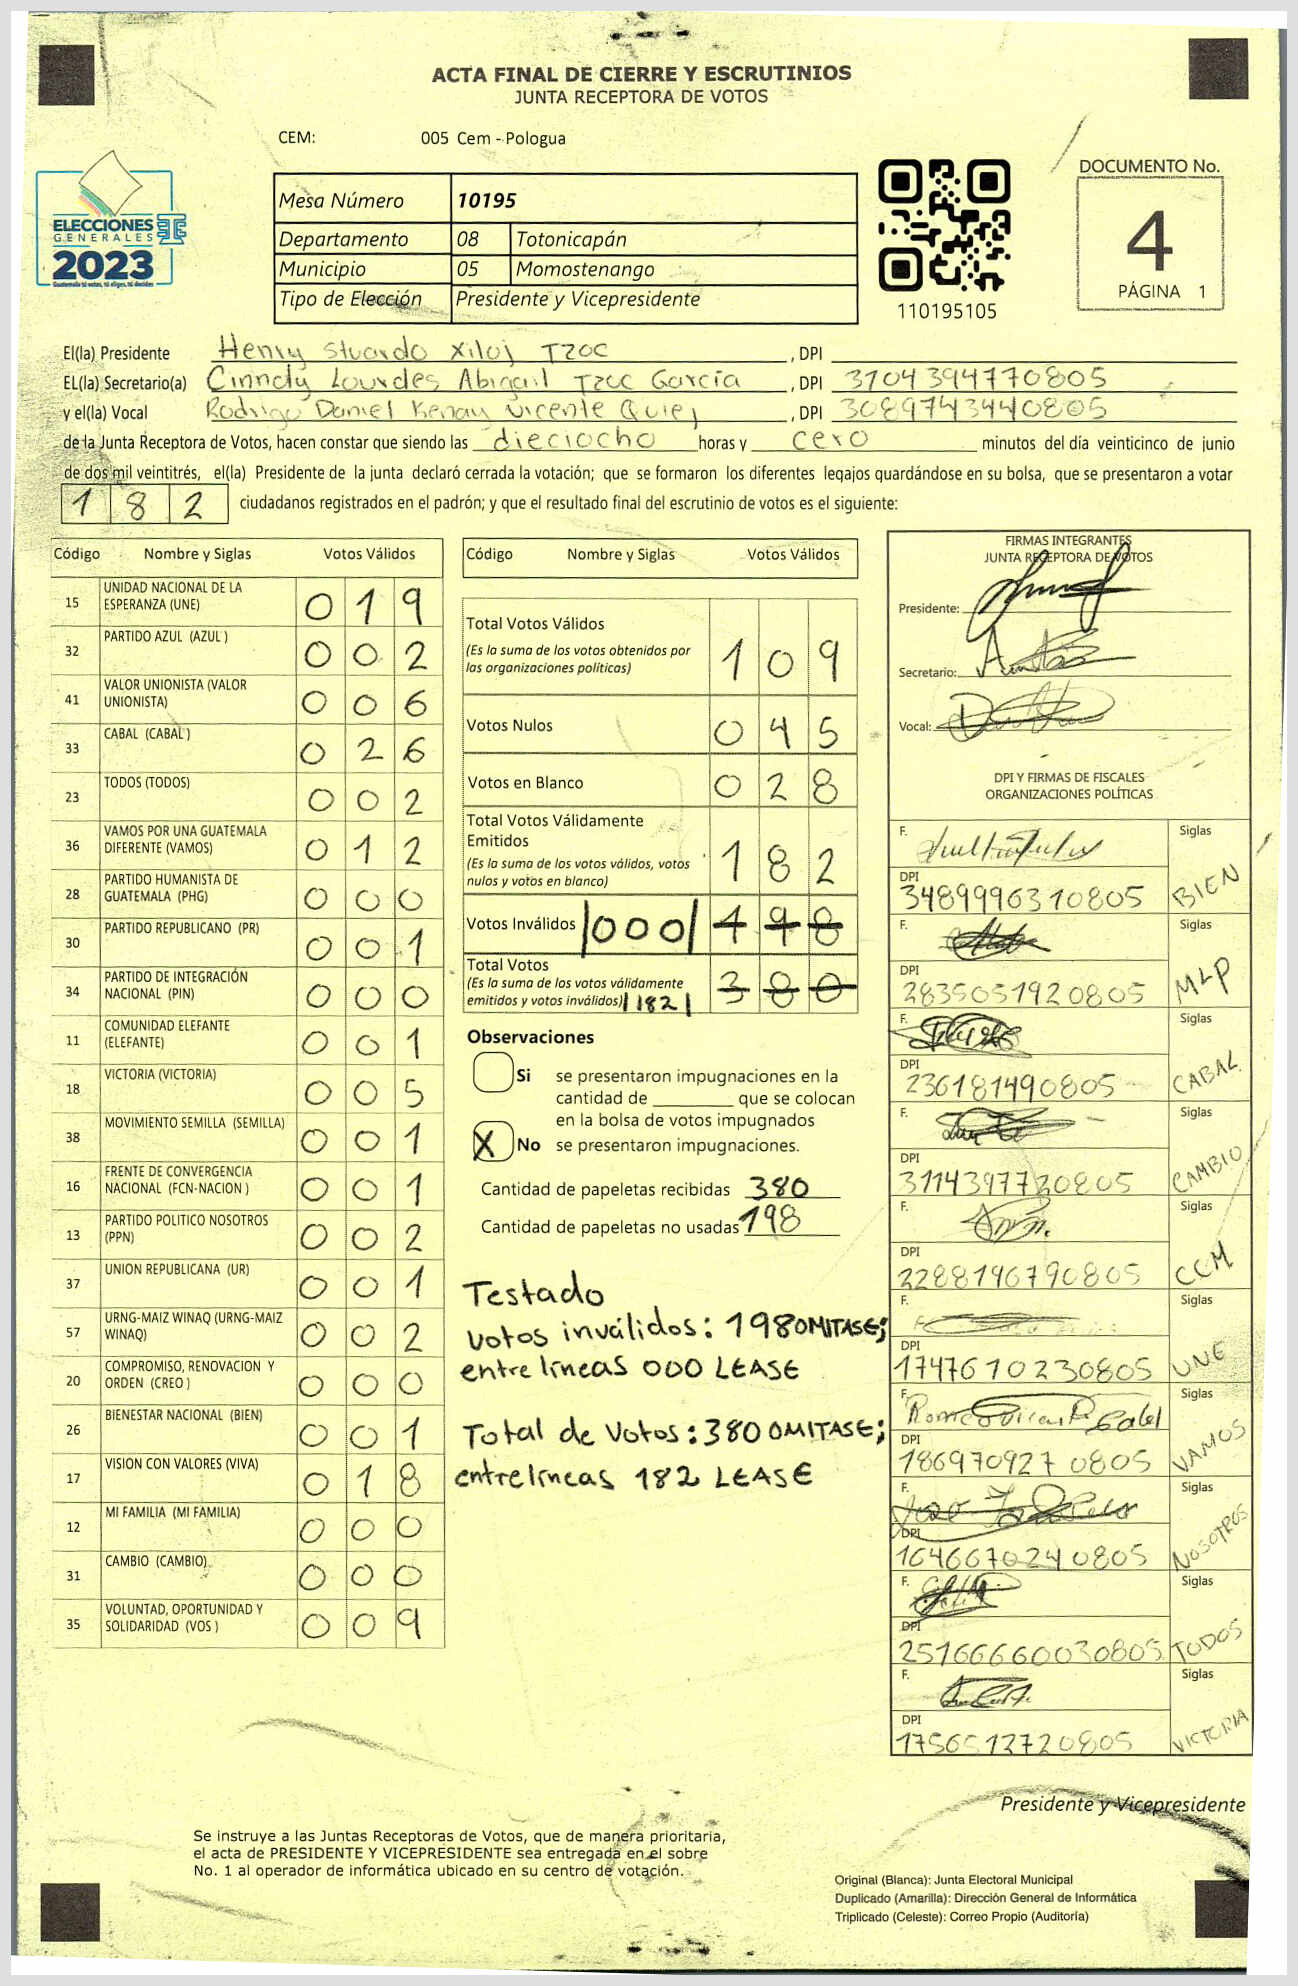 ACTA FINAL DE CIERRE Y ESCRUTINIOS
JUNTA RECEPTORA DE VOTOS
CEM: 005 Cem - Pologua
ELECCIONES
GENERALES
2023
Guatemala tú votas, tú eliges, tú decides
Mesa Número 10195
Departamento 08 Totonicapán
Municipio 05 Momostenango
Tipo de Elección Presidente y Vicepresidente
110195105
DOCUMENTO No.
4
PÁGINA 1
El(la) Presidente Henry Stuardo Xiloj Tzoc , DPI
EL(la) Secretario(a) Cinndy Lourdes Abigail Tzoc García , DPI 3104394770805
y el(la) Vocal Rodrigo Daniel Kenay Vicente Quiej , DPI 3089743440805
de la Junta Receptora de Votos, hacen constar que siendo las dieciocho horas y cero minutos del día veinticinco de junio
de dos mil veintitrés, el(la) Presidente de la junta declaró cerrada la votación; que se formaron los diferentes legajos guardándose en su bolsa, que se presentaron a votar
182 ciudadanos registrados en el padrón; y que el resultado final del escrutinio de votos es el siguiente:
Código Nombre y Siglas Votos Válidos
15 UNIDAD NACIONAL DE LA ESPERANZA (UNE) 019
32 PARTIDO AZUL (AZUL ) 002
41 VALOR UNIONISTA (VALOR UNIONISTA) 006
33 CABAL (CABAL ) 026
23 TODOS (TODOS) 002
36 VAMOS POR UNA GUATEMALA DIFERENTE (VAMOS) 012
28 PARTIDO HUMANISTA DE GUATEMALA (PHG) 000
30 PARTIDO REPUBLICANO (PR) 001
34 PARTIDO DE INTEGRACIÓN NACIONAL (PIN) 000
11 COMUNIDAD ELEFANTE (ELEFANTE) 001
18 VICTORIA (VICTORIA) 005
38 MOVIMIENTO SEMILLA (SEMILLA) 001
16 FRENTE DE CONVERGENCIA NACIONAL (FCN-NACION ) 001
13 PARTIDO POLITICO NOSOTROS (PPN) 002
37 UNION REPUBLICANA (UR) 001
57 URNG-MAIZ WINAQ (URNG-MAIZ WINAQ) 002
20 COMPROMISO, RENOVACION Y ORDEN (CREO ) 000
26 BIENESTAR NACIONAL (BIEN) 001
17 VISION CON VALORES (VIVA) 018
12 MI FAMILIA (MI FAMILIA) 000
31 CAMBIO (CAMBIO) 000
35 VOLUNTAD, OPORTUNIDAD Y SOLIDARIDAD (VOS ) 009
Código Nombre y Siglas Votos Válidos
Total Votos Válidos 109
(Es la suma de los votos obtenidos por
las organizaciones políticas)
Votos Nulos 045
Votos en Blanco 028
Total Votos Válidamente
Emitidos 182
(Es la suma de los votos válidos, votos
nulos y votos en blanco)
Votos Inválidos |000| 198
Total Votos 380
(Es la suma de los votos válidamente
emitidos y votos inválidos) |182|
Observaciones
Si se presentaron impugnaciones en la
cantidad de ________ que se colocan
en la bolsa de votos impugnados
X No se presentaron impugnaciones.
Cantidad de papeletas recibidas 380
Cantidad de papeletas no usadas 198
Testado
votos inválidos: 198 OMITASE;
entre líneas 000 LEASE
Total de Votos: 380 OMITASE;
entre líneas 182 LEASE
FIRMAS INTEGRANTES
JUNTA RECEPTORA DE VOTOS
Presidente:
Secretario:
Vocal:
DPI Y FIRMAS DE FISCALES
ORGANIZACIONES POLÍTICAS
F. Siglas
DPI
3489996310805 BIEN
F. Siglas
DPI
2835051920805 MLP
F. Siglas
DPI
236181490805 CABAL
F. Siglas
DPI
3114397720805 CAMBIO
F. Siglas
DPI
2288196790805 CCM
F. Siglas
DPI
1747610230805 UNE
F. Siglas
DPI
1869709270805 VAMOS
F. Siglas
DPI
1646670240805 NOSOTROS
F. Siglas
DPI
25166660030805 TODOS
F. Siglas
DPI
1756512720805 VICTORIA
Presidente y Vicepresidente
Se instruye a las Juntas Receptoras de Votos, que de manera prioritaria,
el acta de PRESIDENTE Y VICEPRESIDENTE sea entregada en el sobre
No. 1 al operador de informática ubicado en su centro de votación.
Original (Blanca): Junta Electoral Municipal
Duplicado (Amarilla): Dirección General de Informática
Triplicado (Celeste): Correo Propio (Auditoría)